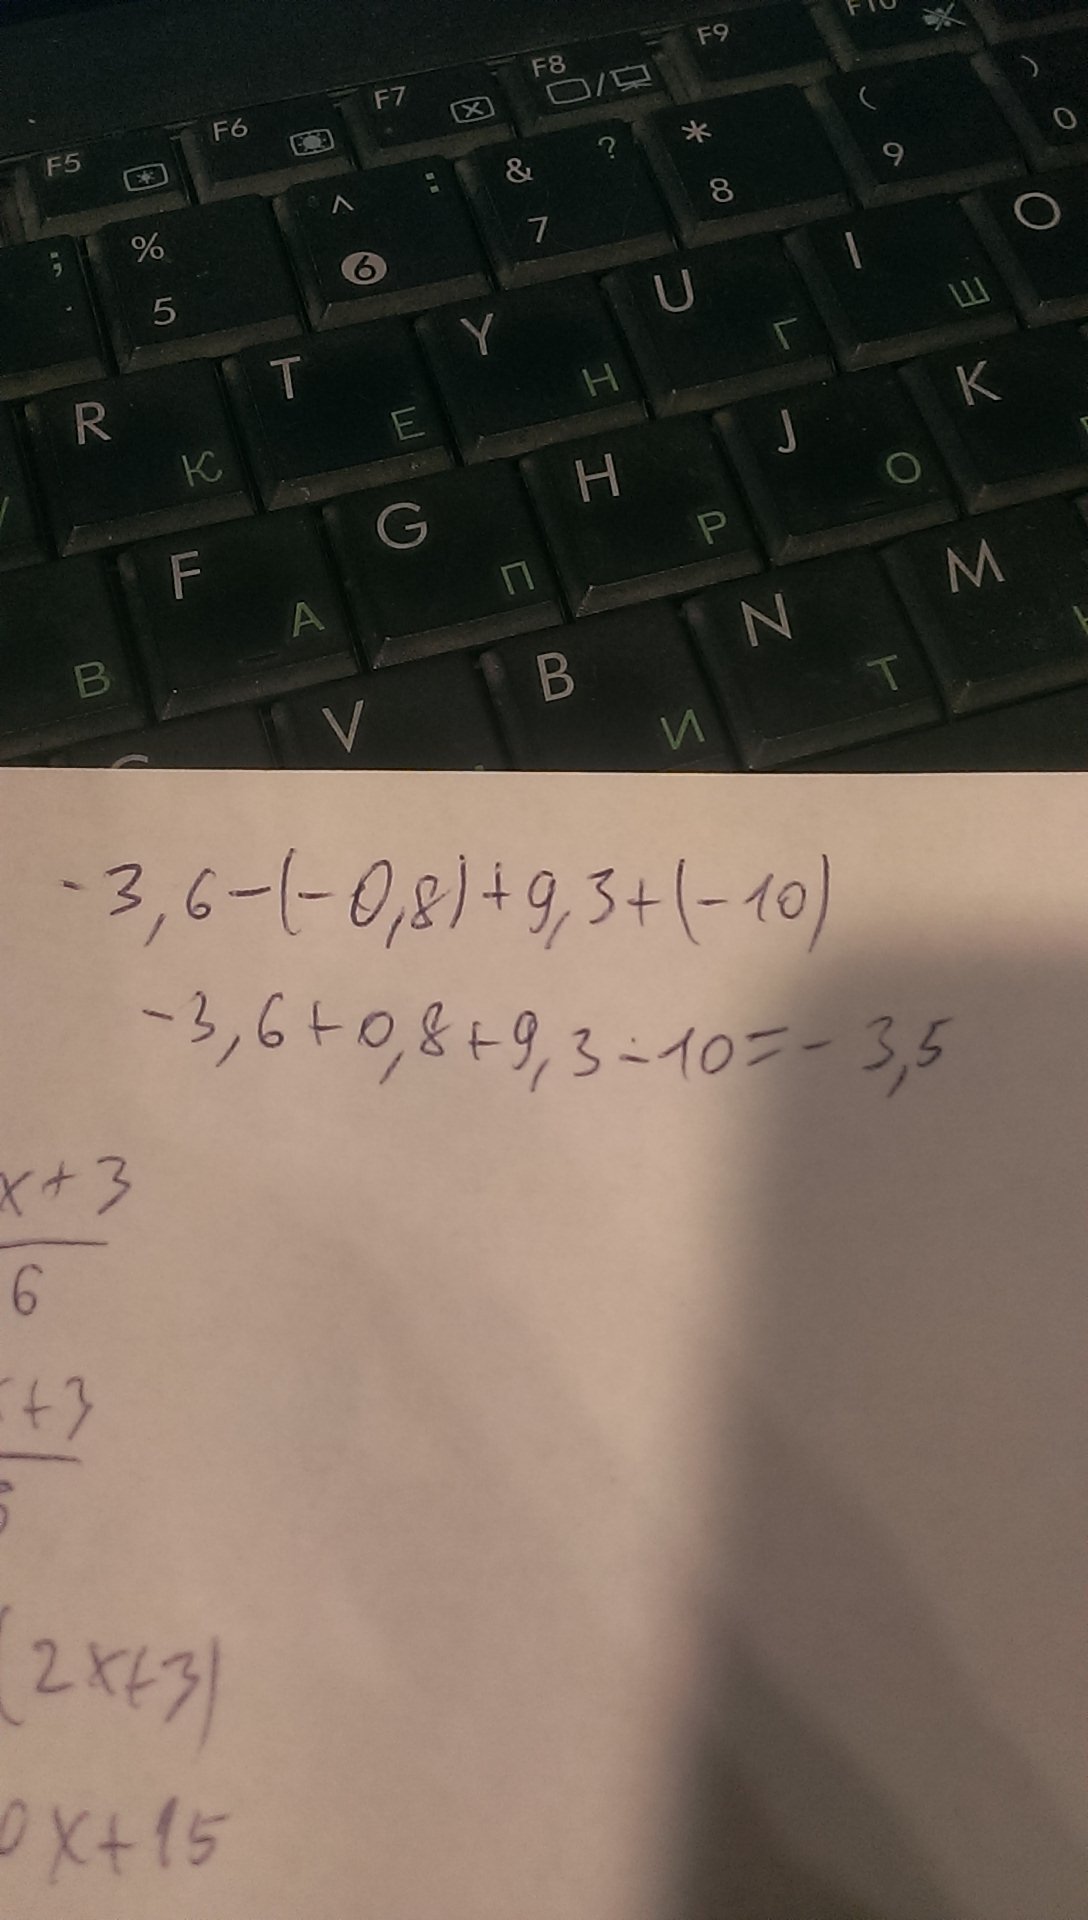 F5 F6 F7 F8 F9 F10
; % 5 ^ : 6 & ? 7 * 8 ( 9 ) 0
R К T Е Y Н U Г I Ш O
В F А G П H Р J О K
V B И N Т M
-3,6-(-0,8)+9,3+(-10)
-3,6+0,8+9,3-10=-3,5
x+3
6
+3
(2x+3)
0x+15